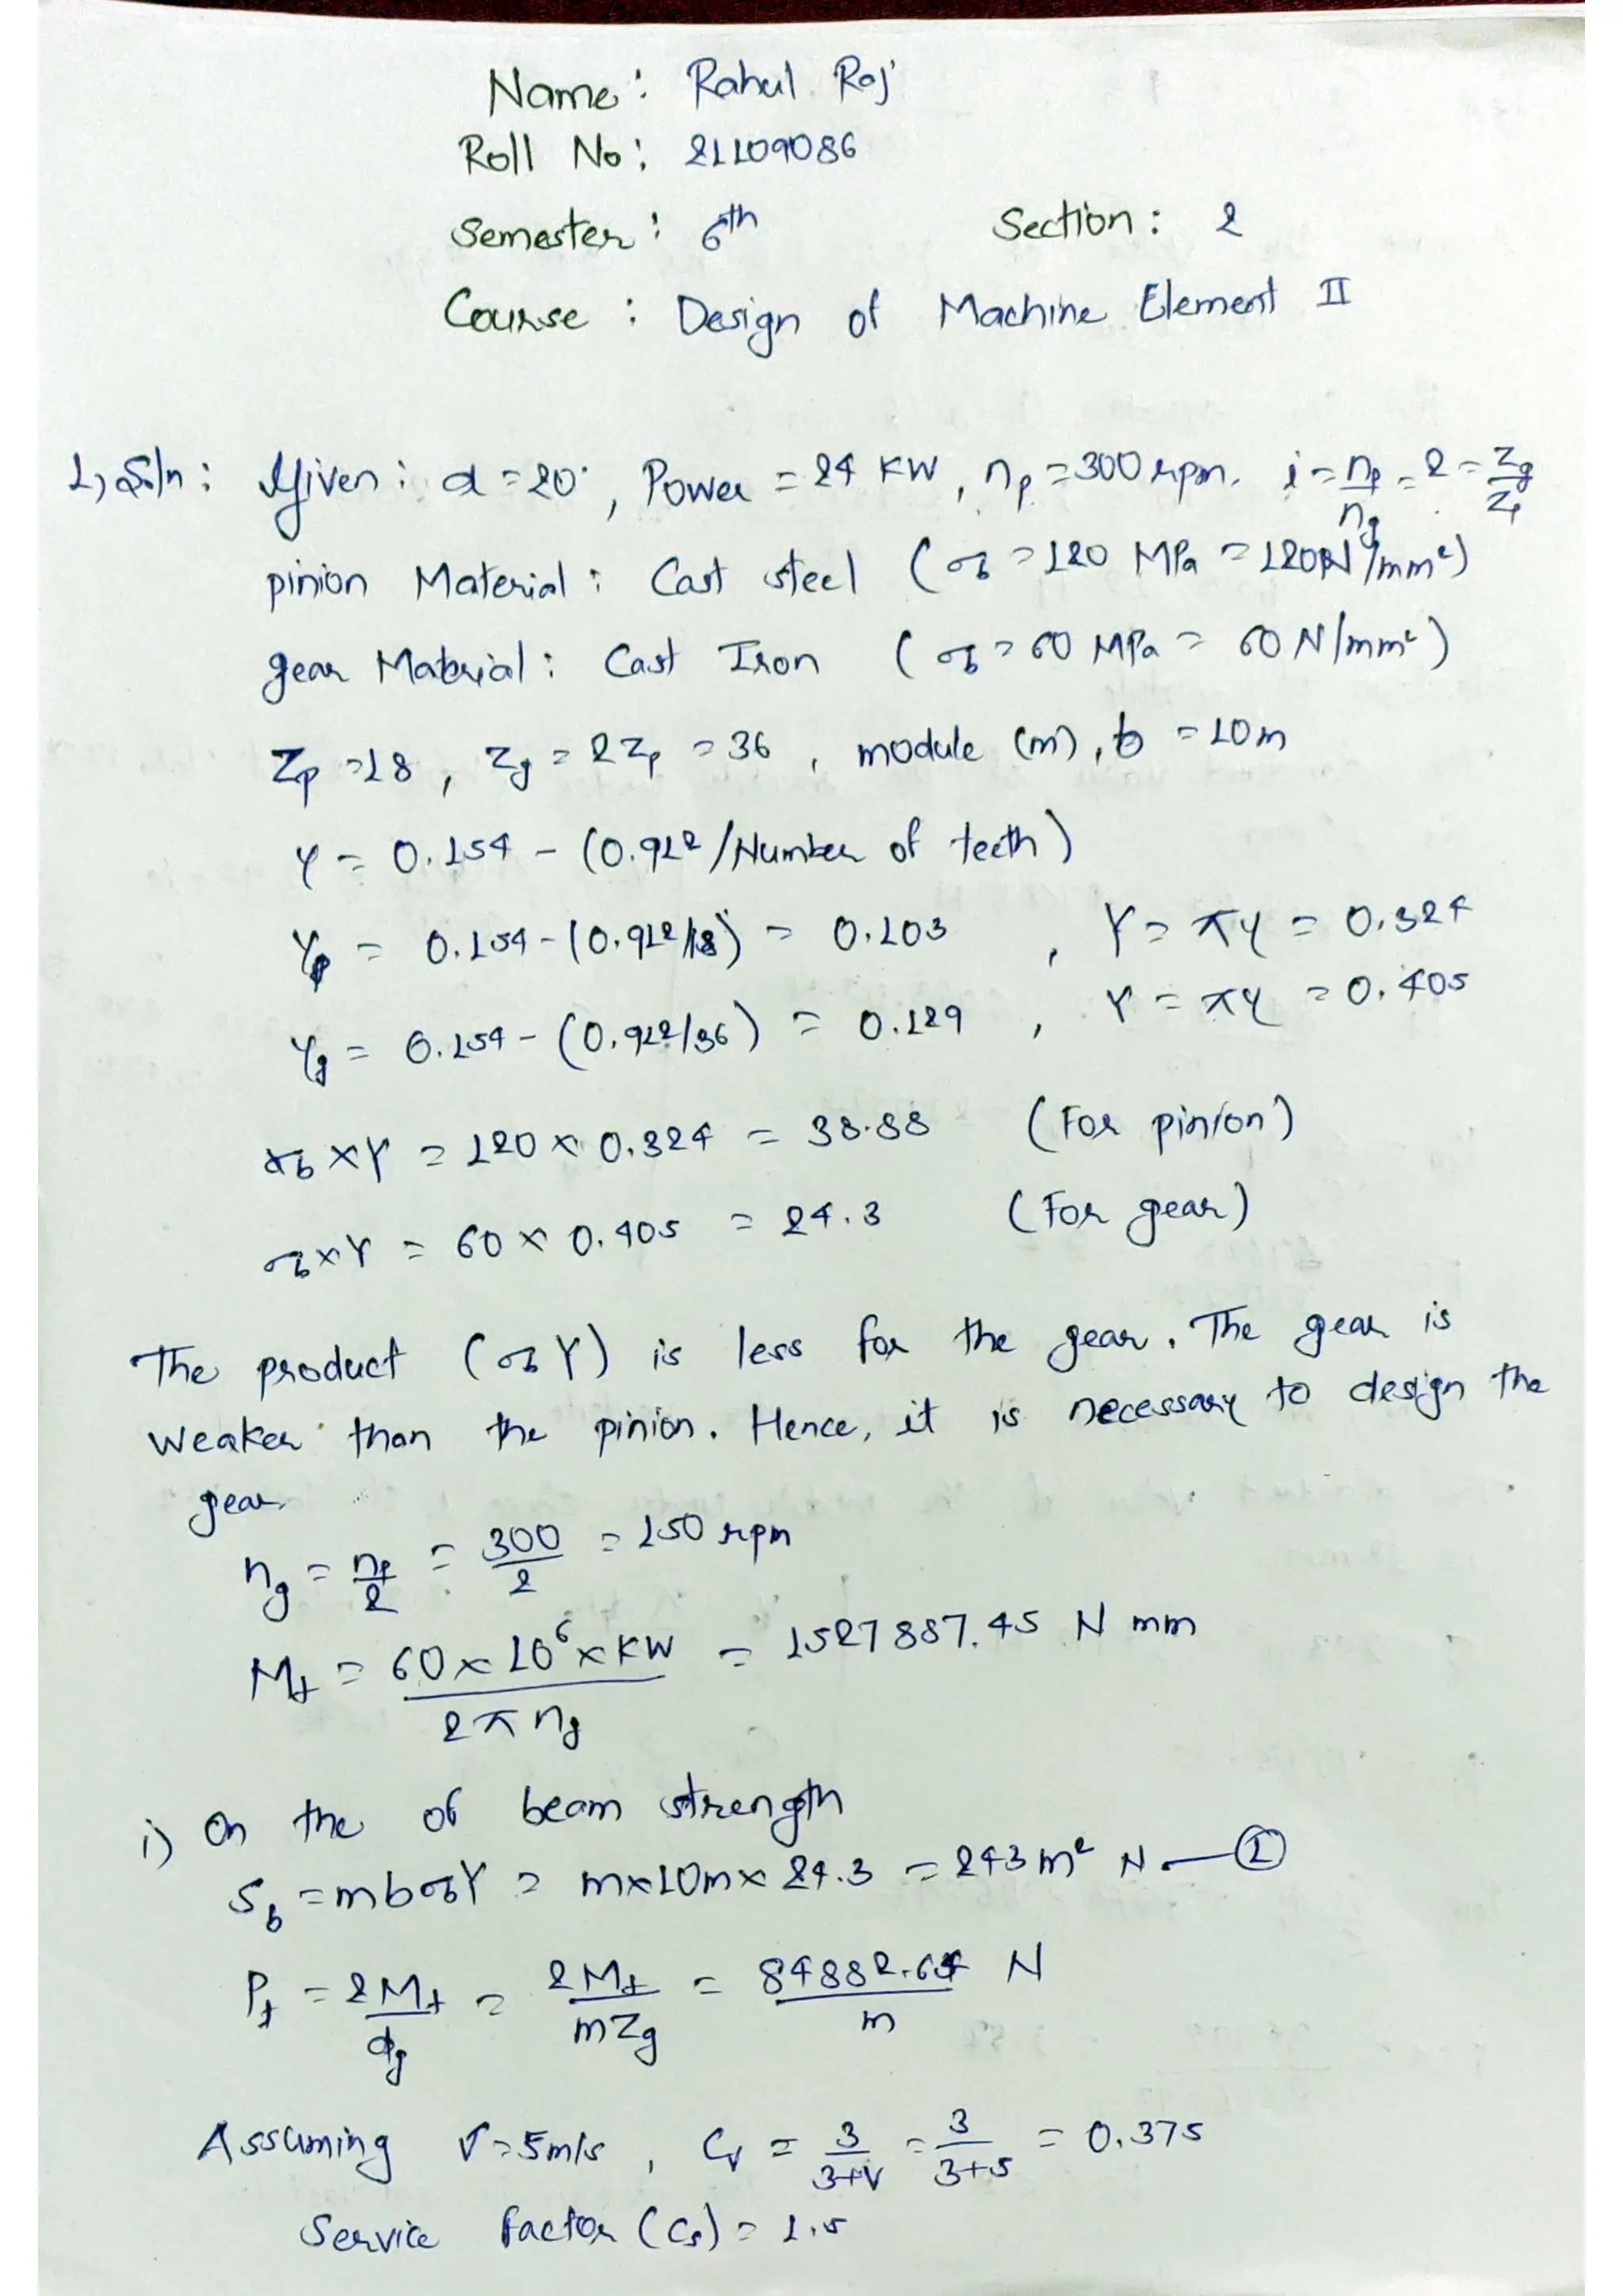 Name : Rahul Raj
Roll No : 21109086
Semester : 6th Section : 2
Course : Design of Machine Element II
1) Soln : Given : α = 20°, Power = 24 KW, np = 300 rpm. i = np/ng = 2 = Zg/Zp
pinion Material : Cast steel (σb = 120 MPa = 120 N/mm²)
gear Material : Cast Iron (σb = 60 MPa = 60 N/mm²)
Zp = 18, Zg = 2Zp = 36, module (m), b = 10m
y = 0.154 - (0.912/Number of teeth)
yp = 0.154 - (0.912/18) = 0.103 , Y = πy = 0.324
yg = 0.154 - (0.912/36) = 0.129 , Y = πy = 0.405
σb × Y = 120 × 0.324 = 38.88 (For pinion)
σb × Y = 60 × 0.405 = 24.3 (For gear)
The product (σb Y) is less for the gear. The gear is
weaker than the pinion. Hence, it is necessary to design the
gear.
ng = np/2 = 300/2 = 150 rpm
Mt = 60 × 10⁶ × KW / 2π ng = 1527887.45 N mm
i) On the of beam strength
Sb = mbσbY = m×10m× 24.3 = 243 m² N — ①
Pt = 2Mt/dg = 2Mt/mZg = 84882.64/m N
Assuming V = 5m/s , Cv = 3/3+V = 3/3+5 = 0.375
Service factor (Cs) = 1.5